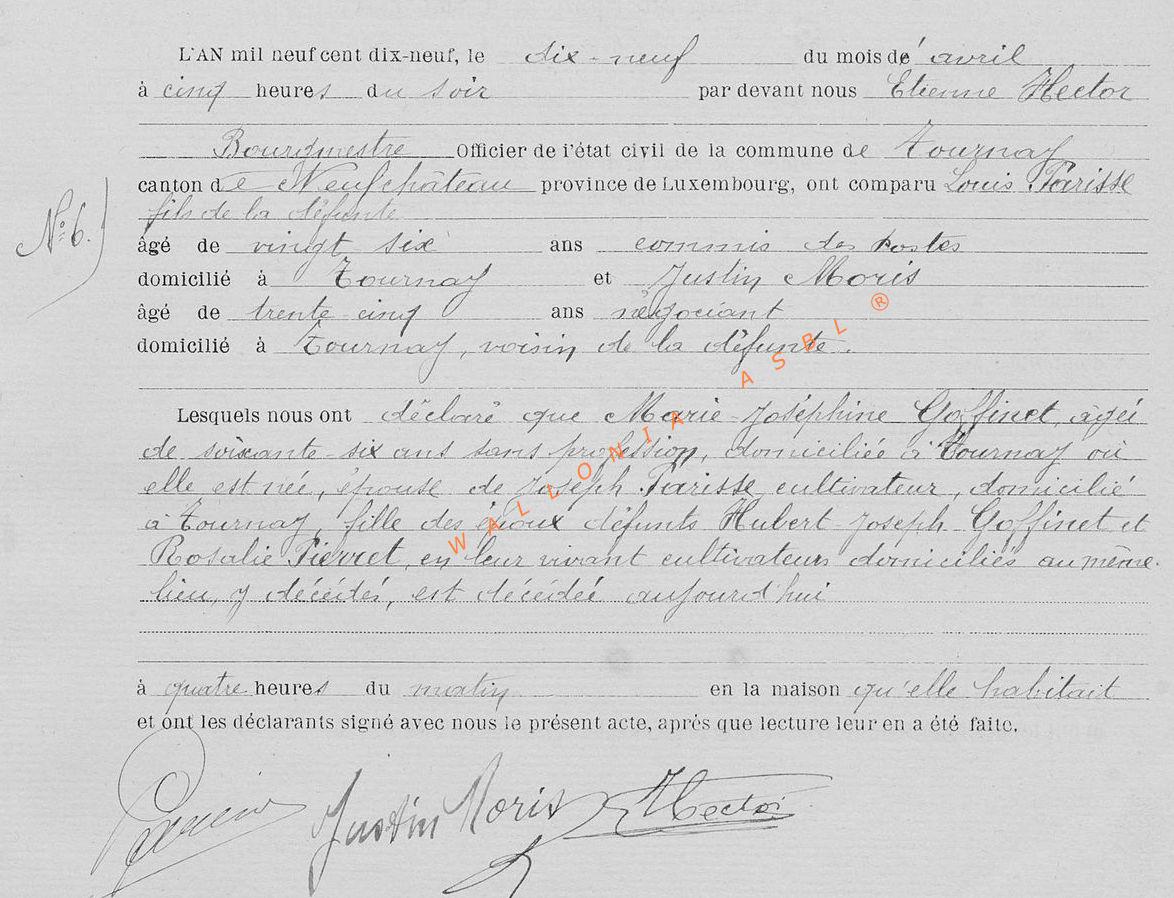 L'AN mil neuf cent dix-neuf, le dix-neuf du mois de avril
à cinq heures du soir par devant nous Etienne Hector
Bourgmestre Officier de l'état civil de la commune de Tournay
canton de Neufchâteau province de Luxembourg, ont comparu Louis Parisse
fils de la défunte
N° 6.
âgé de vingt six ans commis des postes
domicilié à Tournay et Justin Moris
âgé de trente cinq ans négociant
domicilié à Tournay, voisin de la défunte.
Lesquels nous ont déclaré que Marie-Joséphine Goffinet, âgée
de soixante-six ans sans profession, domiciliée à Tournay où
elle est née, épouse de Joseph Parisse cultivateur, domicilié
à Tournay, fille des époux défunts Hubert-Joseph Goffinet et
Rosalie Pierret, en leur vivant cultivateurs domiciliés au même
lieu, y décédés, est décédée aujourd'hui
à quatre heures du matin en la maison qu'elle habitait
et ont les déclarants signé avec nous le présent acte, après que lecture leur en a été faite.
Justin Moris Hector
WALLONIA ASBL ®